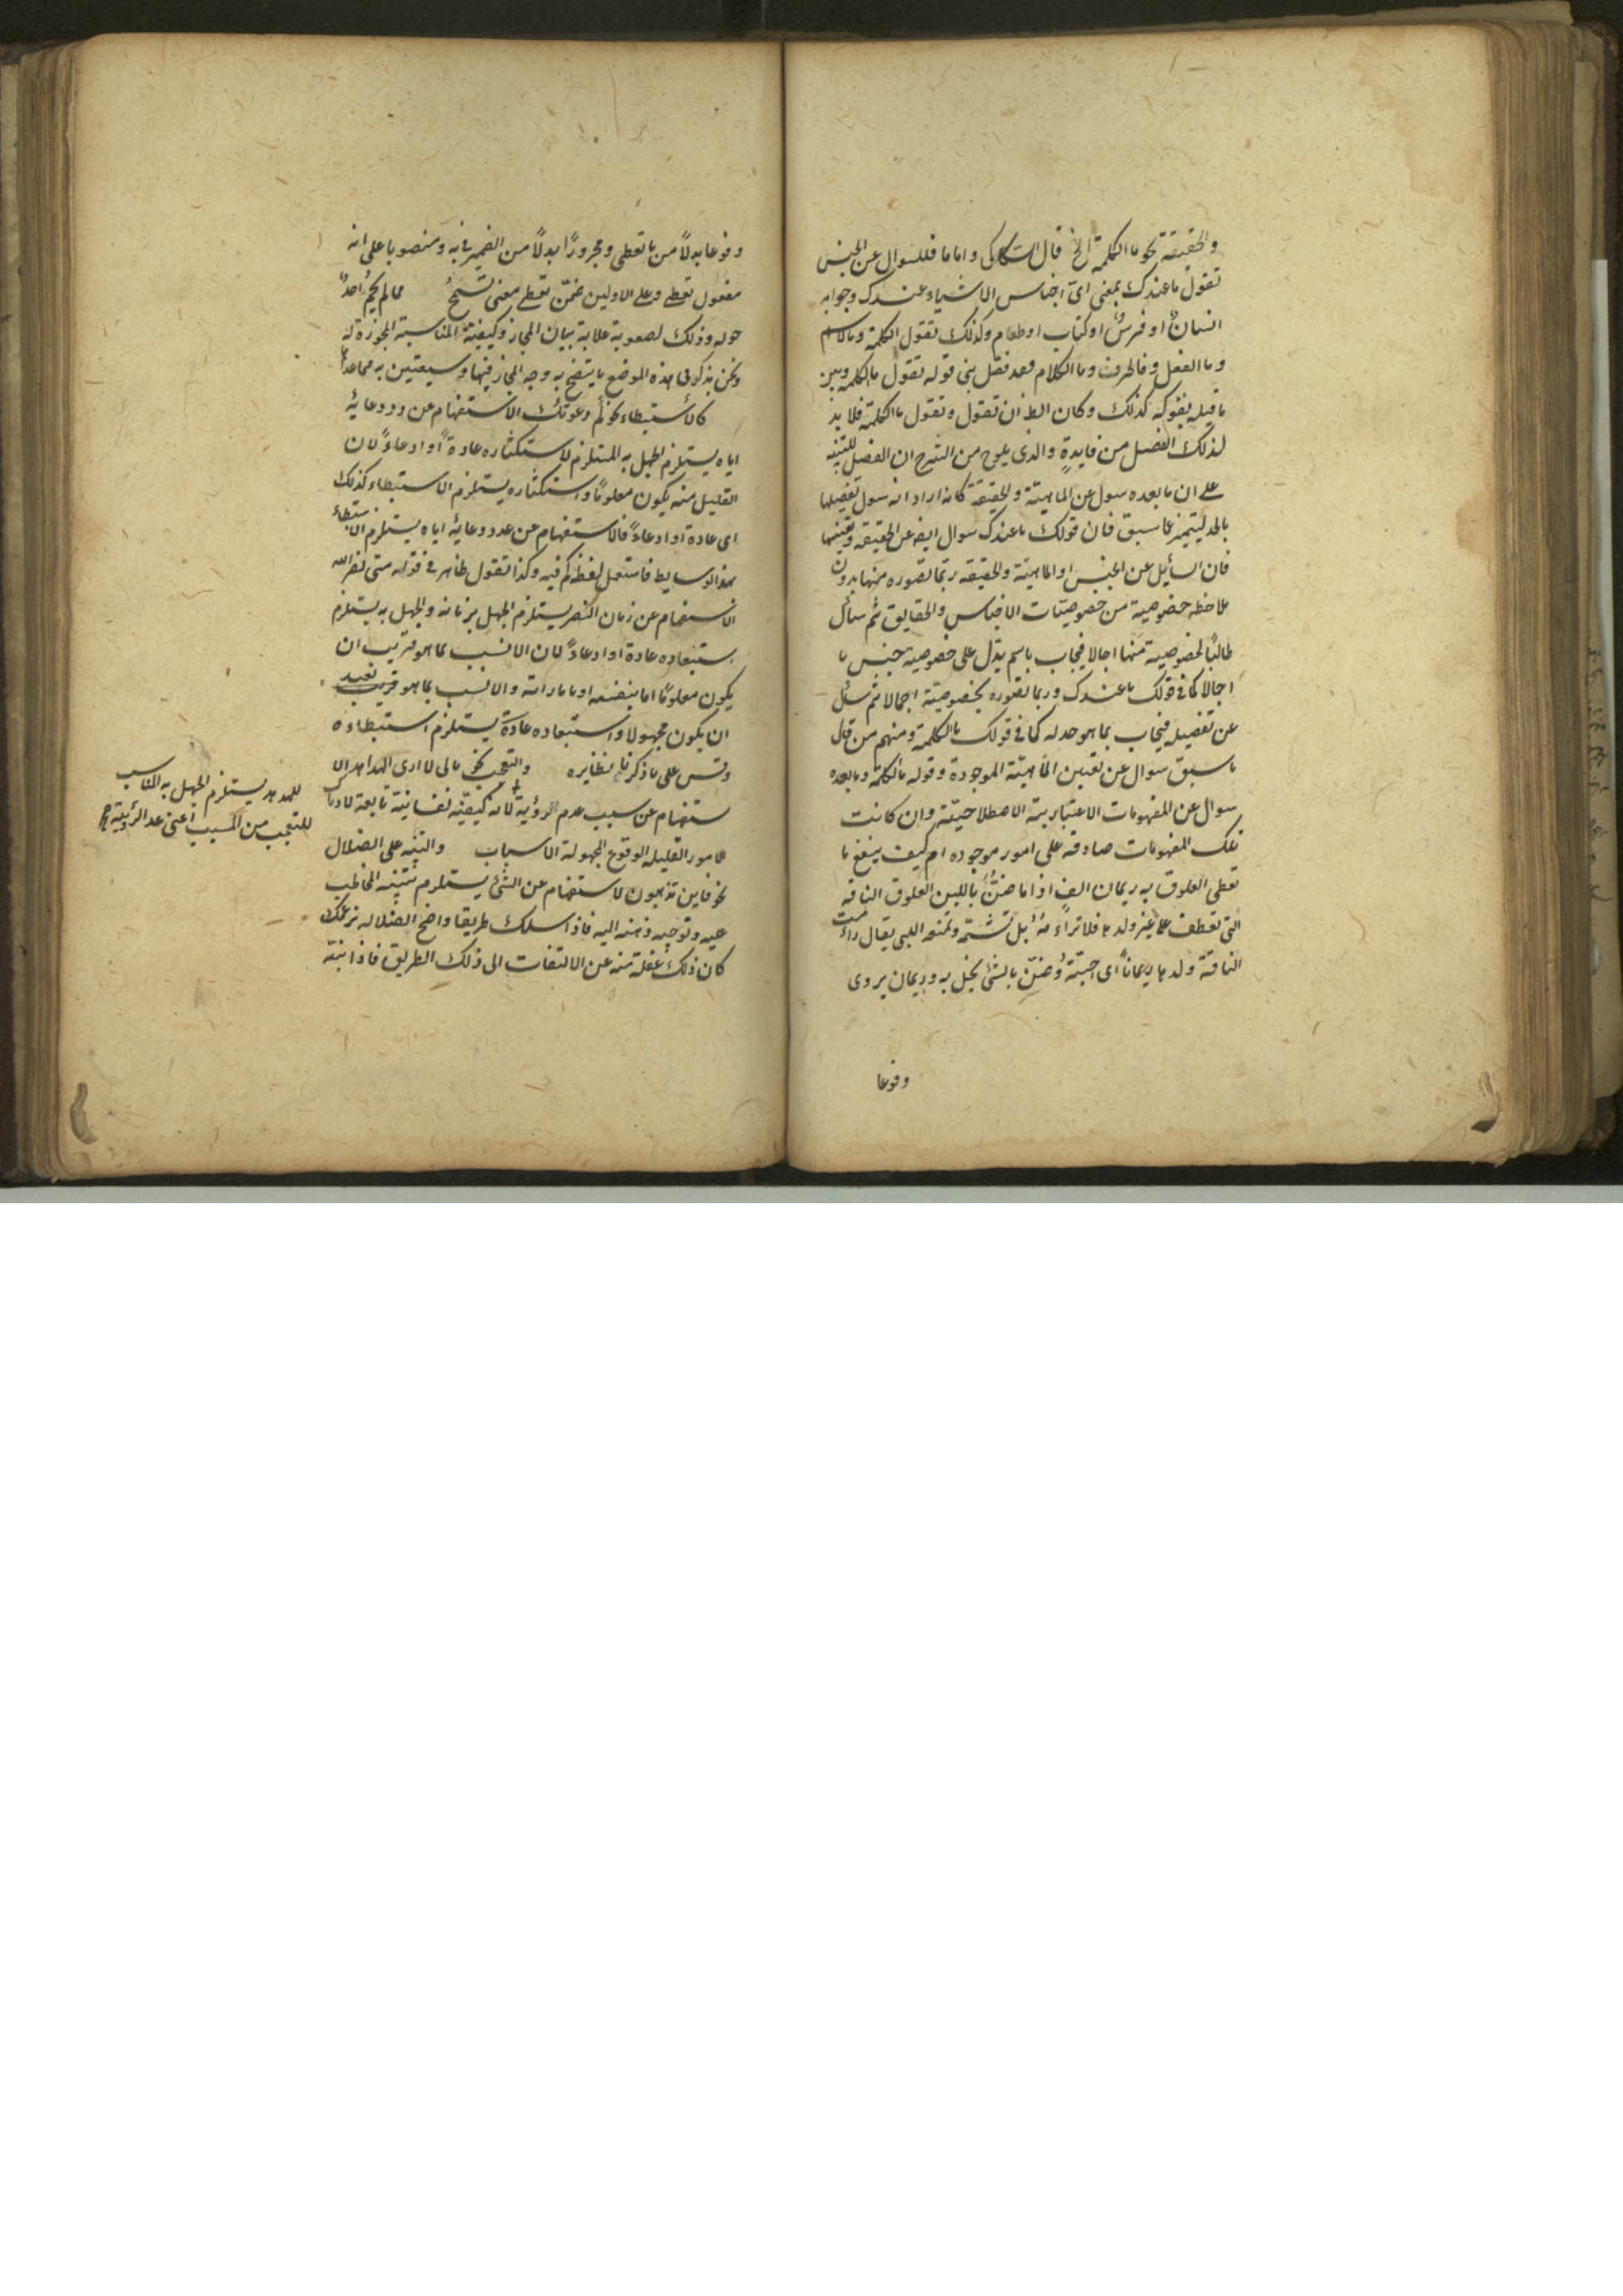 والحقيقة نحو ما الكلمة الخ قال السكاكى واما ما فللسوال عن الجنس
تقول ما عندك بمعنى اىّ اجناس الاشياء عندك وجوابه
انسانٌ او فرسٌ او كتاب او طعام وكذلك تقول ما الكلمة وما الاسم
وما الفعل وما الحرف وما الكلام فقد فصل بين قوله تقول ما الكلمة وبين
ما قبله بقوله كذلك وكان الظ ان تقول وتقول ما الكلمة فلا بد
لذلك الفصل من فايدةٍ والذى يلوح من الشرح ان الفصل للتنبيه
على ان ما بعده سول عن الماهيّة والحقيقة كانه اراد انه سول تفصيلها
بالحد ليتميز عما سبق فان قولك ما عندك سوال ايضا عن الحقيقه وتعينها
فان السأيل عن الجنس او الماهيّة والحقيقه ربّما تصوره منها بدون
ملاحظه خصوصية من خصوصيّات الاجناس والحقايق ثم سأل
طالبًا لخصوصية منها اجمالا فيجاب باسم يدّل على خصوصية جنس ما
اجمالا كما فى قولك ما عندك وربما تصوره بخصوصيّة اجمالا ثم سئل
عن تفصيله فيجاب بما هو حد له كما فى قولك ما الكلمة ومنهم من قال
ما سبق سوال عن تعيين الماهيّة الموجودة وقوله ما الكلمة وما بعده
سوال عن المفهومات الاعتبارية الاصطلاحيّة وان كانت
تلك المفهومات صادقه على امور موجوده ام كيف ينفع ما
تعطى العلوق به ريمان انف اذا ما ضنّ باللبن العلوق الناقه
التى تعطف على غير ولدها فلا ترأمه بل تشمّه وتمنعه اللبن يقال رأمت
الناقة ولدها ريمانًا اى احبّته وضنّ بالشئ بخل به وريمان يروى
وفوعا
وفوعا بدلاً من ما تعطى ومجرورًا بدلاً من الضمير فى به ومنصوبا على انه
مفعول تعطى وعلى الاولين ضمّن تعطى معنى تسمح مما لم يحم احدٌ
حوله وذلك لصعوبة علاقة بيان المجاز وكيفيّة المناسبة المجوزة له
ونحن نذكر فى هذه الموضع ما يتضح به وجه المجاز فيها وسيعتين به مما عداها
كالأستبطاء نحو كم دعوتك الاستفهام عن عدد دعائه
اياه يستلزم الجهل به المستلزم لاستكثاره عادةً او ادعاءً لان
القليل منه يكون معلومًا واستكثاره يستلزم الاستبطاء كذلك
اى عادة او ادعاءً فالاستفهام عن عدد دعائه اياه يستلزم الاستبطاء
بهذا الوسايط فاستعمل لفظه كم فيه وكذا تقول ظاهر فى قوله متى نصر الله
الاستفهام عن زمان النصر يستلزم الجهل بزمانه والجهل به يستلزم
استبعاده عادة او ادعاءً لان الانسب بما هو قريب ان
يكون معلومًا اما بنفسه او باماراته والانسب بما هو بعيد
ان يكون مجهولا واستبعاده عادة يستلزم استبطاءه
وقس على ما ذكرنا نظايره والتعجب نحو مالى لا ارى الهدهد الا
ستفهام عن سبب عدم الرؤية لانه كيفيّة نفسانيّة تابعة لادراك
الامور القليله الوقوع المجهولة الاسباب والتنبيه على الضلال
نحو فاين تذهبون الاستفهام عن الشئ يستلزم تنبيه المخاطب
عليه وتوجيه ذهنه اليه فاذا سلك طريقا واضح الضلاله نزعمك
كان ذلك غفلة منه عن الالتفات الى ذلك الطريق فاذا نبّه
للهدهد يستلزم الجهل به المناسب
للتعجب من المسبب اعنى عدم الرؤية